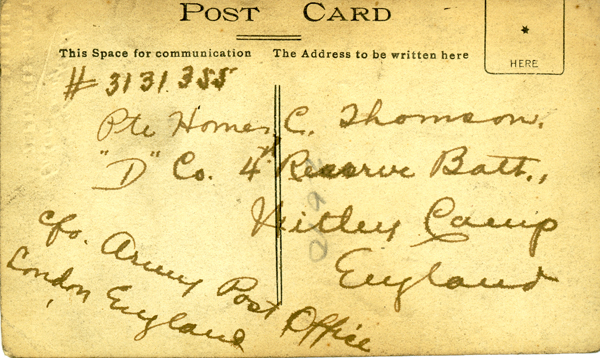 POST CARD
This Space for communication The Address to be written here
HERE
# 3131355
Pte Homer C. Thomson.
"D" Co. 4th Reserve Batt.,
Witley Camp
England
c/o. Army Post Office
London England